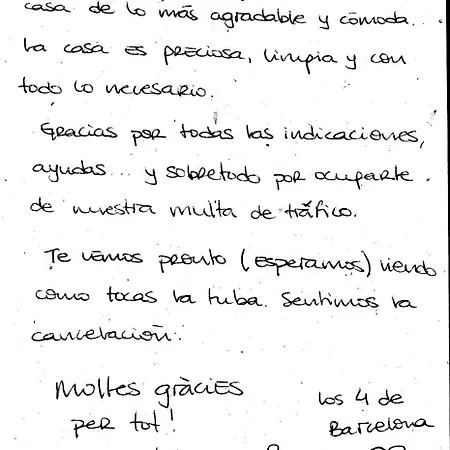 casa de lo más agradable y cómoda...
La casa es preciosa, limpia y con
todo lo necesario.
Gracias por todas las indicaciones,
ayudas... y sobretodo por ocuparte
de nuestra multa de tráfico.
Te vemos pronto (esperamos) viendo
como tocas la tuba. Sentimos la
cancelación.
Moltes gràcies
per tot!
Los 4 de
Barcelona